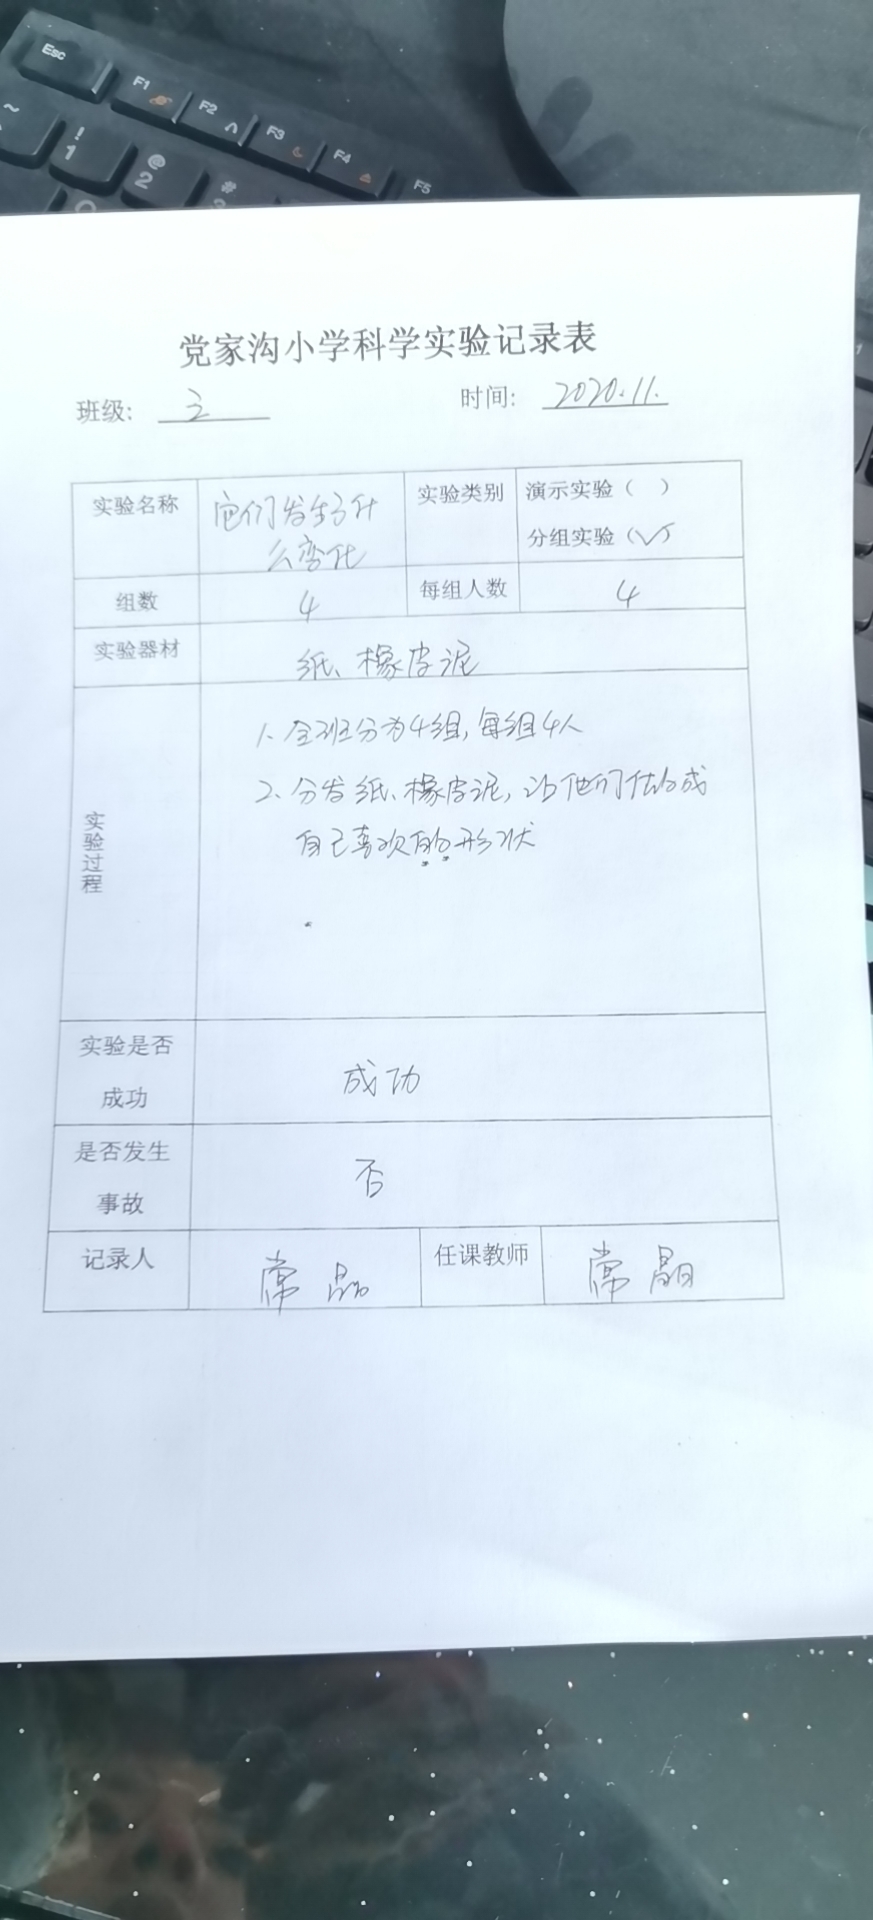 Esc
F1
F2
F3
F4
F5
~
!
1
@
2
#
党家沟小学科学实验记录表
班级: 三 时间: 2020.11.
实验名称 它们发生了什么变化 实验类别 演示实验( )
分组实验(√)
组数 4 每组人数 4
实验器材 纸、橡皮泥
实验过程
1. 全班分为4组,每组4人
2. 分发纸、橡皮泥,让他们做成
自己喜欢的形状
实验是否
成功 成功
是否发生
事故 否
记录人 常晶 任课教师 常晶